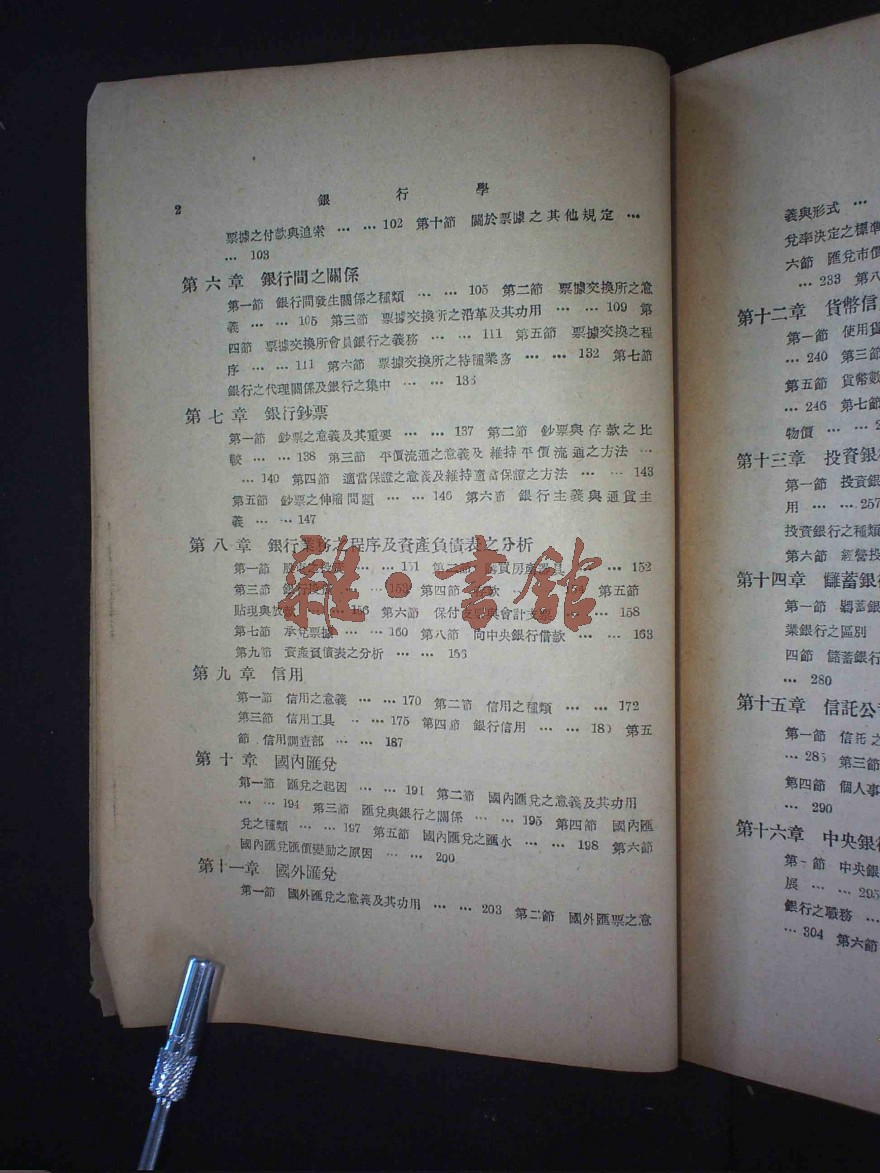 2 銀行學
票據之付款與追索 … … 102 第十節 關於票據之其他規定 …
… 103
第六章 銀行間之關係
第一節 銀行間發生關係之種類 … … 105 第二節 票據交換所之意
義 … … 105 第三節 票據交換所之沿革及其功用 … … 109 第
四節 票據交換所會員銀行之義務 … … 111 第五節 票據交換之程
序 … … 111 第六節 票據交換所之特種業務 … … 132 第七節
銀行之代理關係及銀行之集中 … …
第七章 銀行鈔票
第一節 鈔票之意義及其重要 … … 137 第二節 鈔票與存款之比
較 … … 138 第三節 平價流通之意義及維持平價流通之方法 …
… 140 第四節 適當保證之意義及維持適當保證之方法 … … 143
第五節 鈔票之伸縮問題 … … 146 第六節 銀行主義與通貨主
義 … … 147
第八章 銀行業務之程序及資產負債表之分析
第一節 … … 151 第二節 購買房產器具 … 152
第三節 銀行 … 153 第四節 存款 … 154 第五節
貼現與放款 … 156 第六節 保付支票與會計支票 … … 158
第七節 承兌票據 … … 160 第八節 向中央銀行借款 … … 163
第九節 資產負債表之分析 … …
第九章 信用
第一節 信用之意義 … … 170 第二節 信用之種類 … … 172
第三節 信用工具 … … 175 第四節 銀行信用 … … 18 第五
節 信用調查部 … … 187
第十章 國內匯兌
第一節 匯兌之起因 … … 191 第二節 國內匯兌之意義及其功用
… … 194 第三節 匯兌與銀行之關係 … … 195 第四節 國內匯
兌之種類 … … 197 第五節 國內匯兌之匯水 … … 198 第六節
國內匯兌匯價變動之原因 … … 200
第十一章 國外匯兌
第一節 國外匯兌之意義及其功用 … … 203 第二節 國外匯票之意
雜·書館
義與形式 …
兌率決定之標準
六節 匯兌市價
… 233 第八
第十二章 貨幣信
第一節 使用貨
… 240 第三節
第五節 貨幣數
… 246 第七節
物價 … …
第十三章 投資銀
第一節 投資銀
用 … … 257
投資銀行之種類
第六節 經營投
第十四章 儲蓄銀行
第一節 儲蓄銀
業銀行之區別
四節 儲蓄銀行
… 280
第十五章 信託公
第一節 信託之
… 285 第三節
第四節 個人事
… 290
第十六章 中央銀行
第一節 中央銀
展 … … 295
銀行之職務 …
… 304 第六節